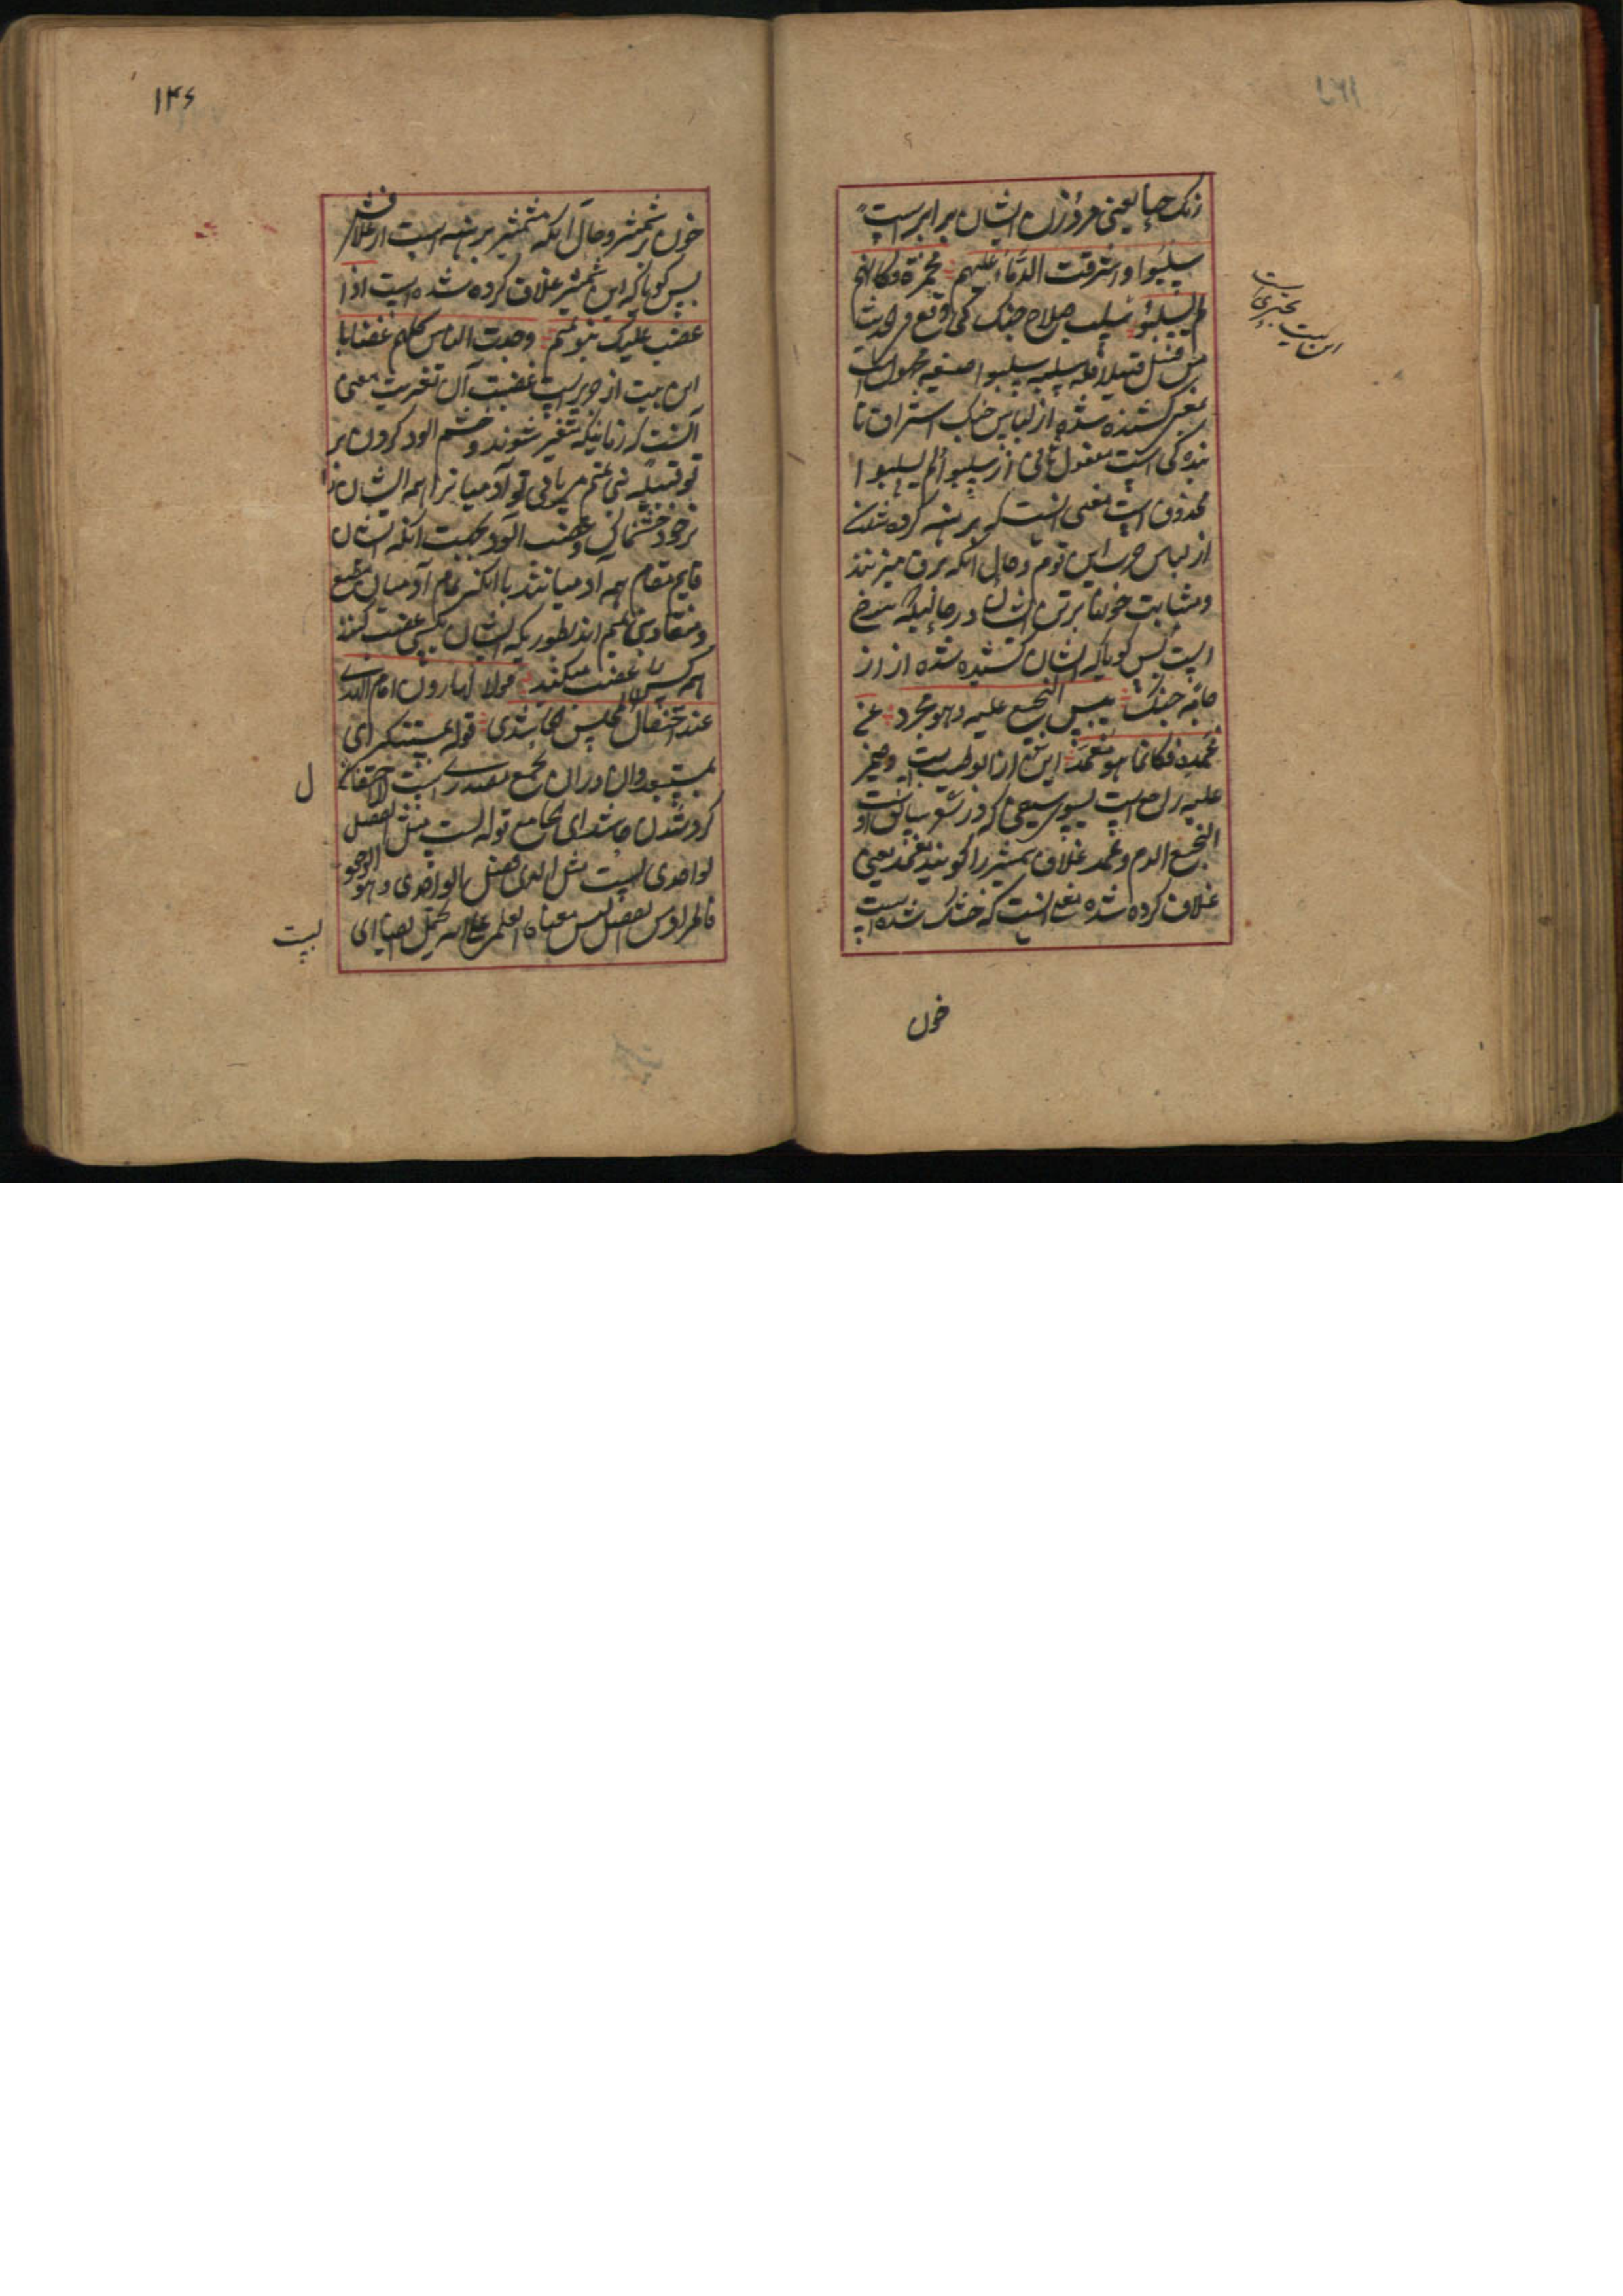 رنک حنا یعنی مرد و زن ایشان برابر است
سلبوا و اشرقت الدماء علیهم محمرة فکانهم
لم یسلبوا سلب سلاح جنک کما وقع فی الحدیث
من قتل قتیلا فله سلبه سلبوا صیغه مجهول است
بمعنی کشیده شده از لباس جنک اشراق تا
بنده کی است مفعول ثانی از سلبوا لم یسلبوا
محذوف است معنی انست که برهنه کرده شدند
از لباس حرب این قوم و حال انکه برق میزنند
و مشابت خونها بر تن ایشان در حالیکه سرخ
است پس کویا که ایشان کشیده نشده از از
جامه جنک یبس النجیع علیه و هو مجرد عن
غمده فکانما هو مغمد این شعر از ابوطیب است و ضمیر
علیه راجع است بسوی سیفی که در شعر سابق است
النجیع الدم و غمد غلاف شمشیر را کویند مغمد یعنی
غلاف کرده شده معنی انست که خشک شده است
خون
این بیت
بحتری است
۱۴۶
خون بر شمشیر و حال انکه شمشیر برهنه است از غلافش
پس کویا که این شمشیر غلاف کرده شده است اذا
غضبت علیک بنو تمیم وجدت الناس کلهم غضابا
این بیت از جریر است غضبت ان تغیرت معنی
آنست که زمانیکه متغیر شوند و خشم الود کردن بر
تو قبیله بنی تمیم می یابی تو آدمیانرا همه ایشان
بر خود خشمناک و غضب الود بجهت انکه ایشان
قایم مقام همه آدمیانند یا انکه تمام آدمیان مطیع
و منقاد بنی تمیم اند بطوریکه ایشان بکسی غضب کنند
همه کس غضب میکنند قولا لهارون امام الهدی
عند احتفال المجلس الحاشدی قوله بمستنکر ای
بمستبعد وان در ان یجمع مصدری است الاحتفال
کرد شدن حاشد ای جامع قوله لست مثل الفضل
لواجدی لیست مثل الذی فضل بالواجدی و هو الوجود
فالمراد من الفضل لیس معناه العلمی علی انه یحتمل ایضا ای
ل
لیست